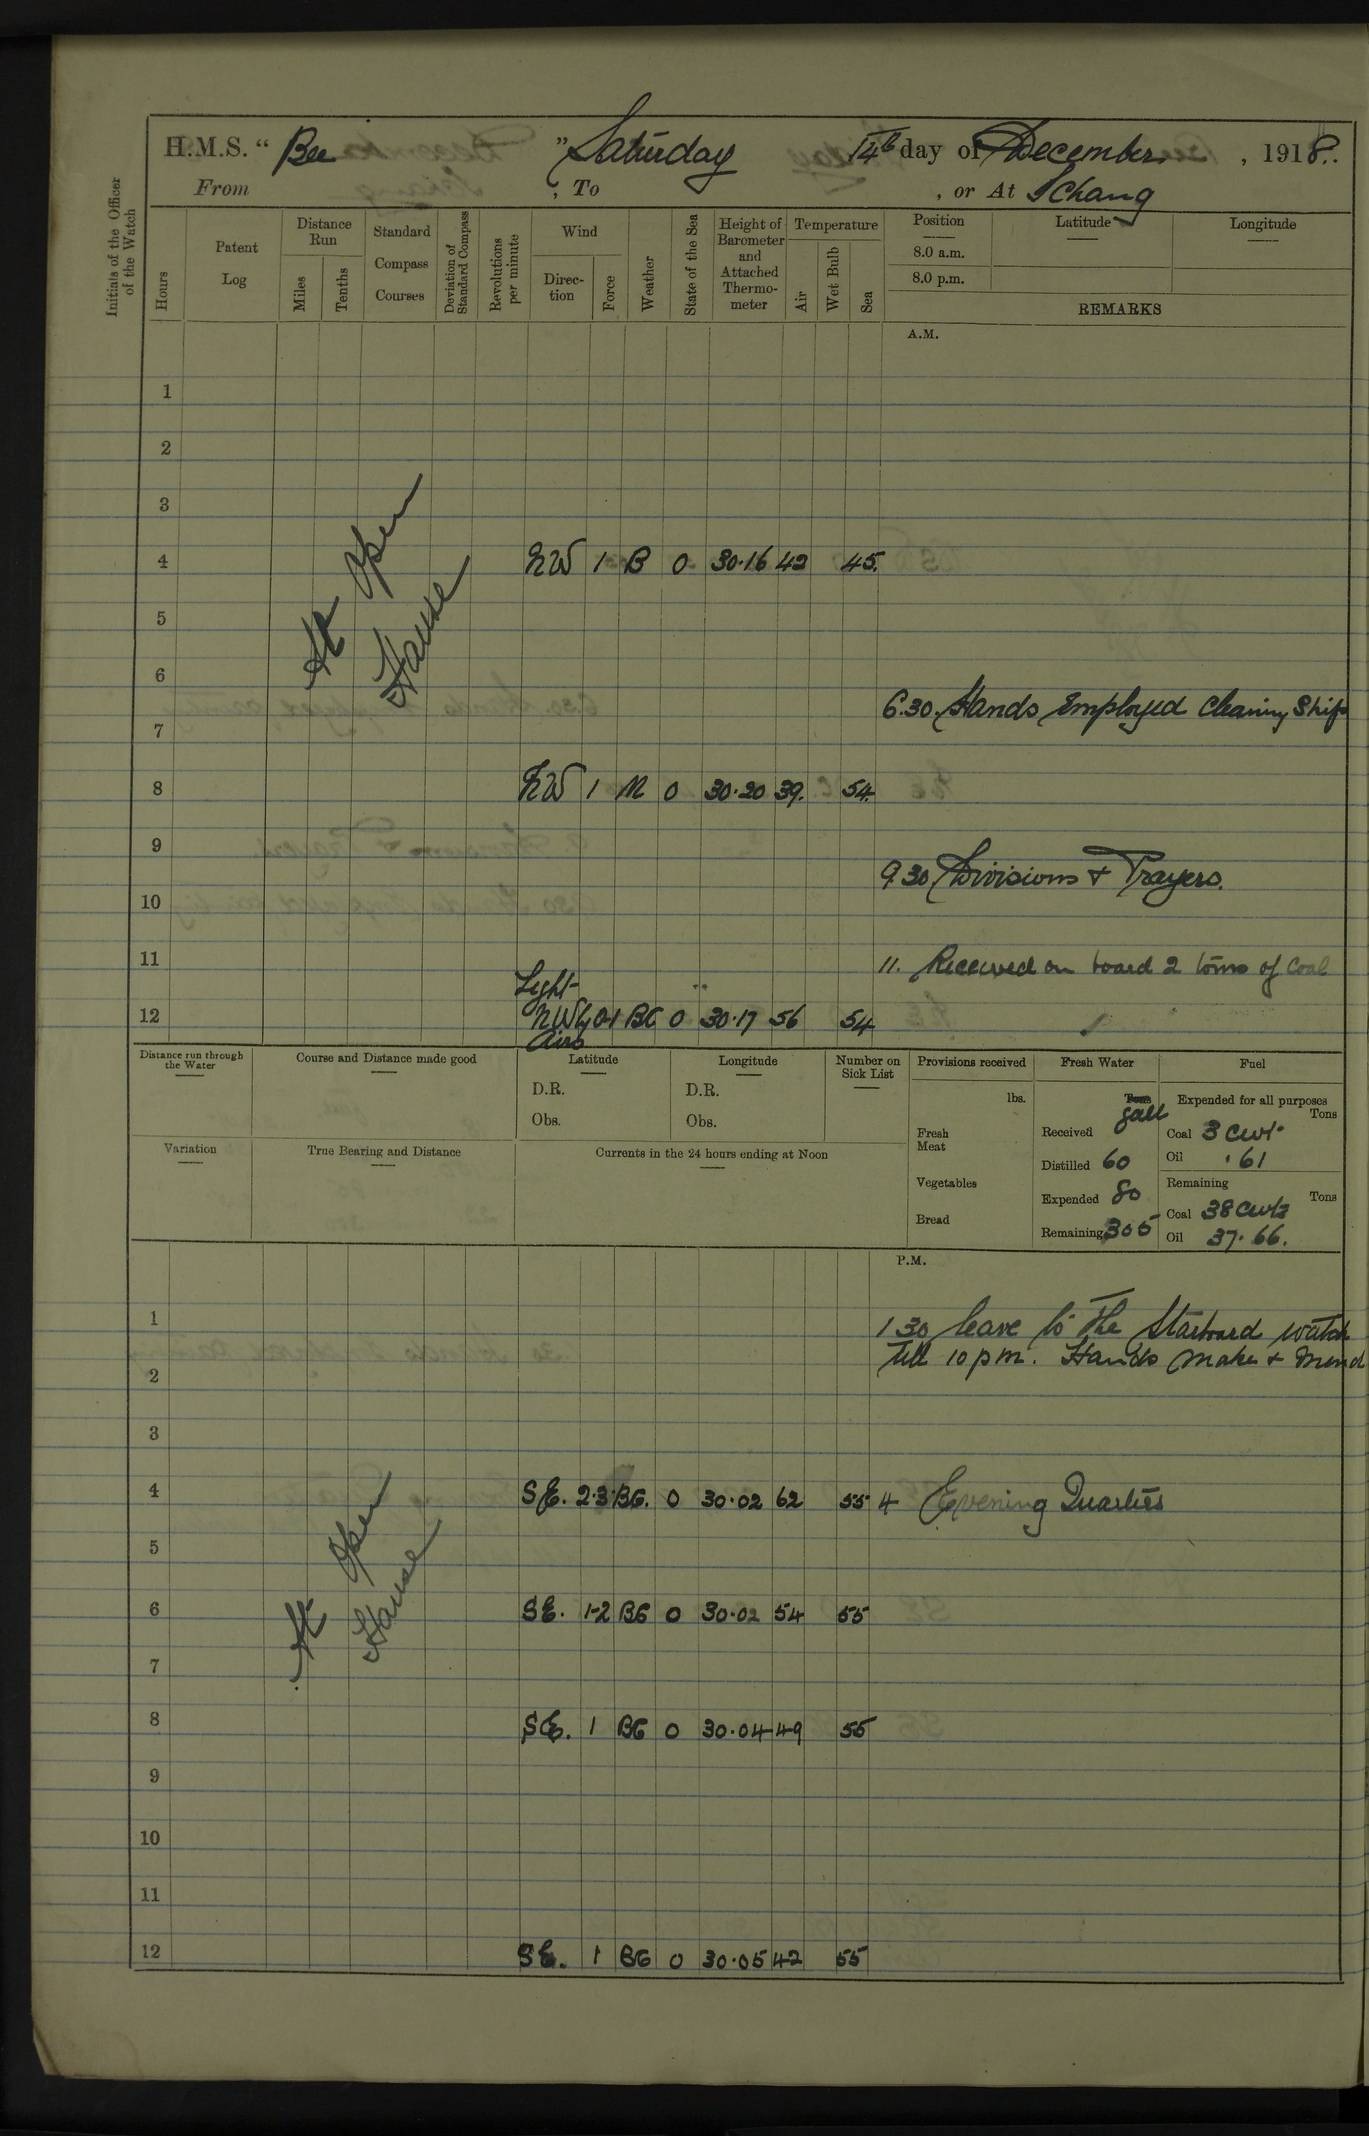 H.M.S. " Bee " Saturday 14th day of December, 1918.
From , To , or At Ichang
Initials of the Officer of the Watch
Hours
Patent Log
Distance Run
Miles
Tenths
Standard Compass Courses
Deviation of Standard Compass
Revolutions per minute
Wind
Direction
Force
Weather
State of the Sea
Height of Barometer and Attached Thermometer
Temperature
Air
Wet Bulb
Sea
Position
8.0 a.m.
8.0 p.m.
Latitude
Longitude
REMARKS
A.M.
1
2
3
At Open Hause
4 NW 1 B 0 30.16 42 45.
5
6
6.30. Hands Employed Cleaning Ship
7
8 NW 1 M 0 30.20 39. 54.
9
9 30 Divisions & Prayers.
10
11 11. Received on board 2 tons of Coal
Light
12 NWly 0-1 BC 0 30.17 56 54
Airs
Distance run through the Water
Course and Distance made good
Latitude
D.R.
Obs.
Longitude
D.R.
Obs.
Number on Sick List
Variation
True Bearing and Distance
Currents in the 24 hours ending at Noon
Provisions received
lbs.
Fresh Meat
Vegetables
Bread
Fresh Water
Tons
gall
Received
Distilled 60
Expended 80
Remaining 305
Fuel
Expended for all purposes
Tons
Coal 3 cwt.
Oil .61
Remaining
Tons
Coal 38 cwts
Oil 37.66.
P.M.
1 1 30 leave to the Starboard watch
till 10 pm. Hands make & mend
2
3
At Open Hause
4 SE. 2.3. BC. 0 30.02 62 55 4 Evening Quarters
5
6 SE. 1-2 BC 0 30.02 54 55
7
8 SE. 1 BC 0 30.04 49 55
9
10
11
12 SE. 1 BC 0 30.05 42 55